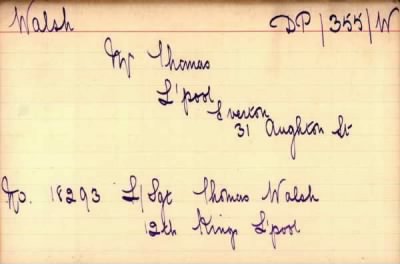 Walsh DP/355/W
Mr Thomas
L'pool
Everton
31 Aughton St
No. 18293 L/Sgt Thomas Walsh
12th Kings L'pool